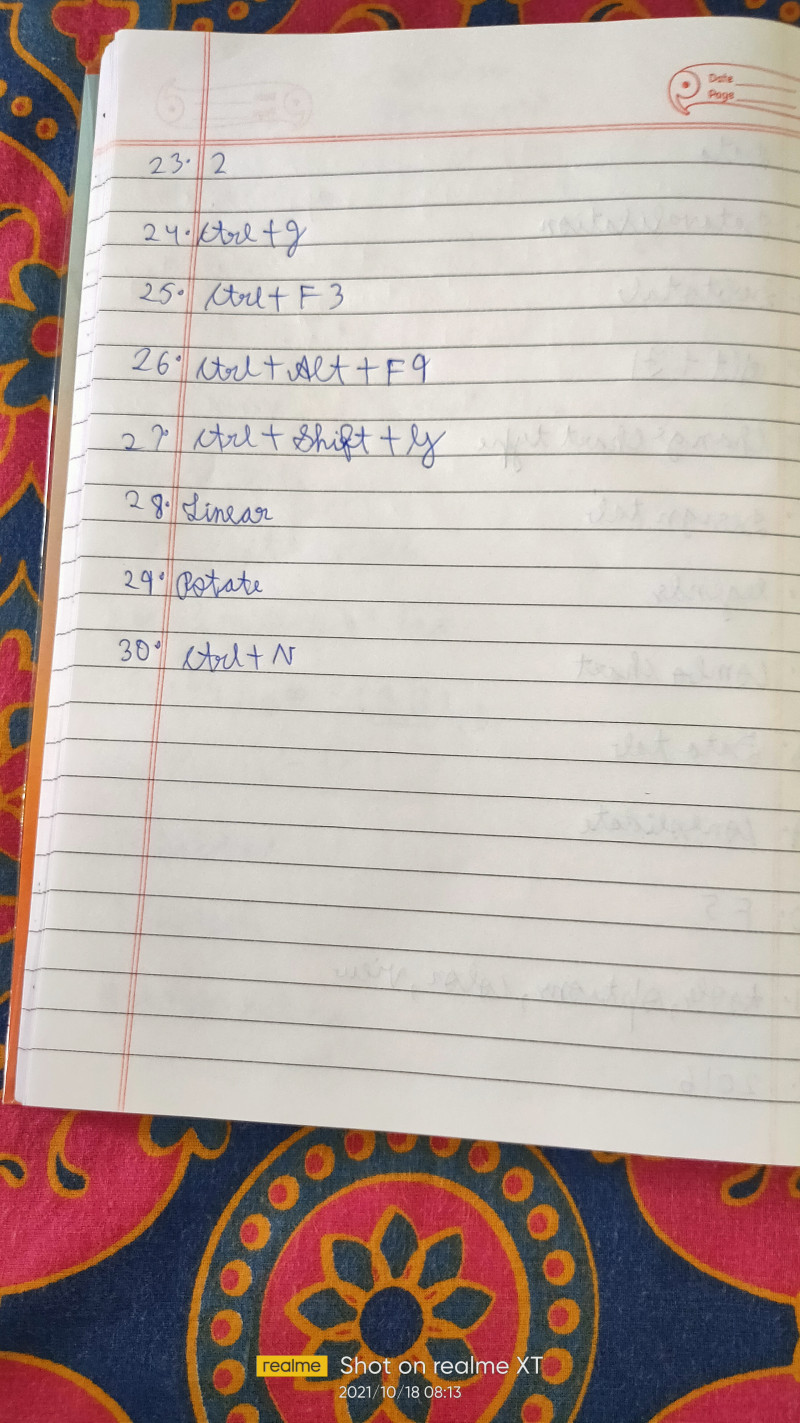 Date
Page
23. 2
24. Ctrl + g
25. Ctrl + F3
26. Ctrl + Alt + F9
27. Ctrl + Shift + y
28. Linear
29. Rotate
30. Ctrl + N
realme Shot on realme XT
2021/10/18 08:13